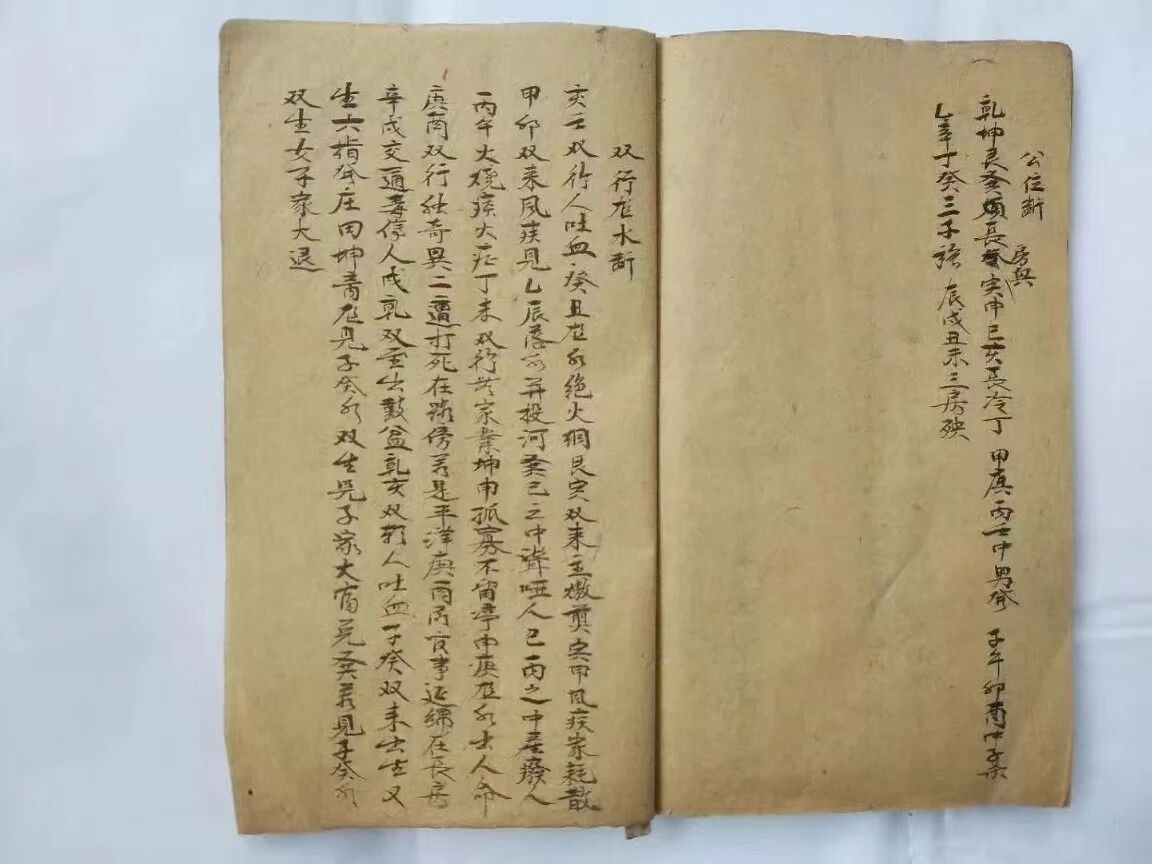 公位断 房與
乾坤艮巽須長發寅申巳亥長冷丁 甲庚丙壬中男發 子午卯酉中子
乙辛丁癸三子強 辰戌丑未三房殃
双行龙水断
亥壬双行人吐血癸丑龙水绝火烟艮寅双来主寅甲风疾家耗散
甲卯双来风疾見乙辰落水并投河巽巳之中聋哑人巳丙之中產癈人
丙午火燒痰火症丁未双行共家業坤申孤寡不甯停申庚龙水出人命
庚酉双行继奇異二遭打死在路傍若是平洋庚酉事延绵在長房
辛戌交通毒信人戌乾双重出鼓盆乾亥双行人吐血子癸双来出生又
生六指發庄田坤龙見子癸水双生児子家大富兑巽若見子癸水
双生女子家大退